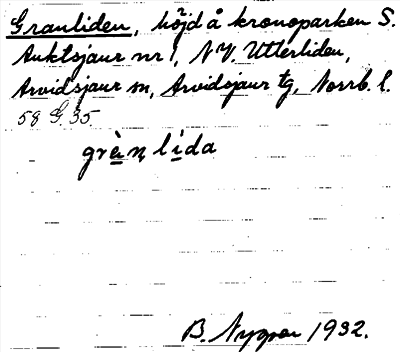 Granliden, höjd å kronoparken S.
Auktsjaur nr 1, NV. Utterliden,
Arvidsjaur sn, Arvidsjaur tg, Norrb. l.
58 G. 35
grànlida
B. Nygren 1932.